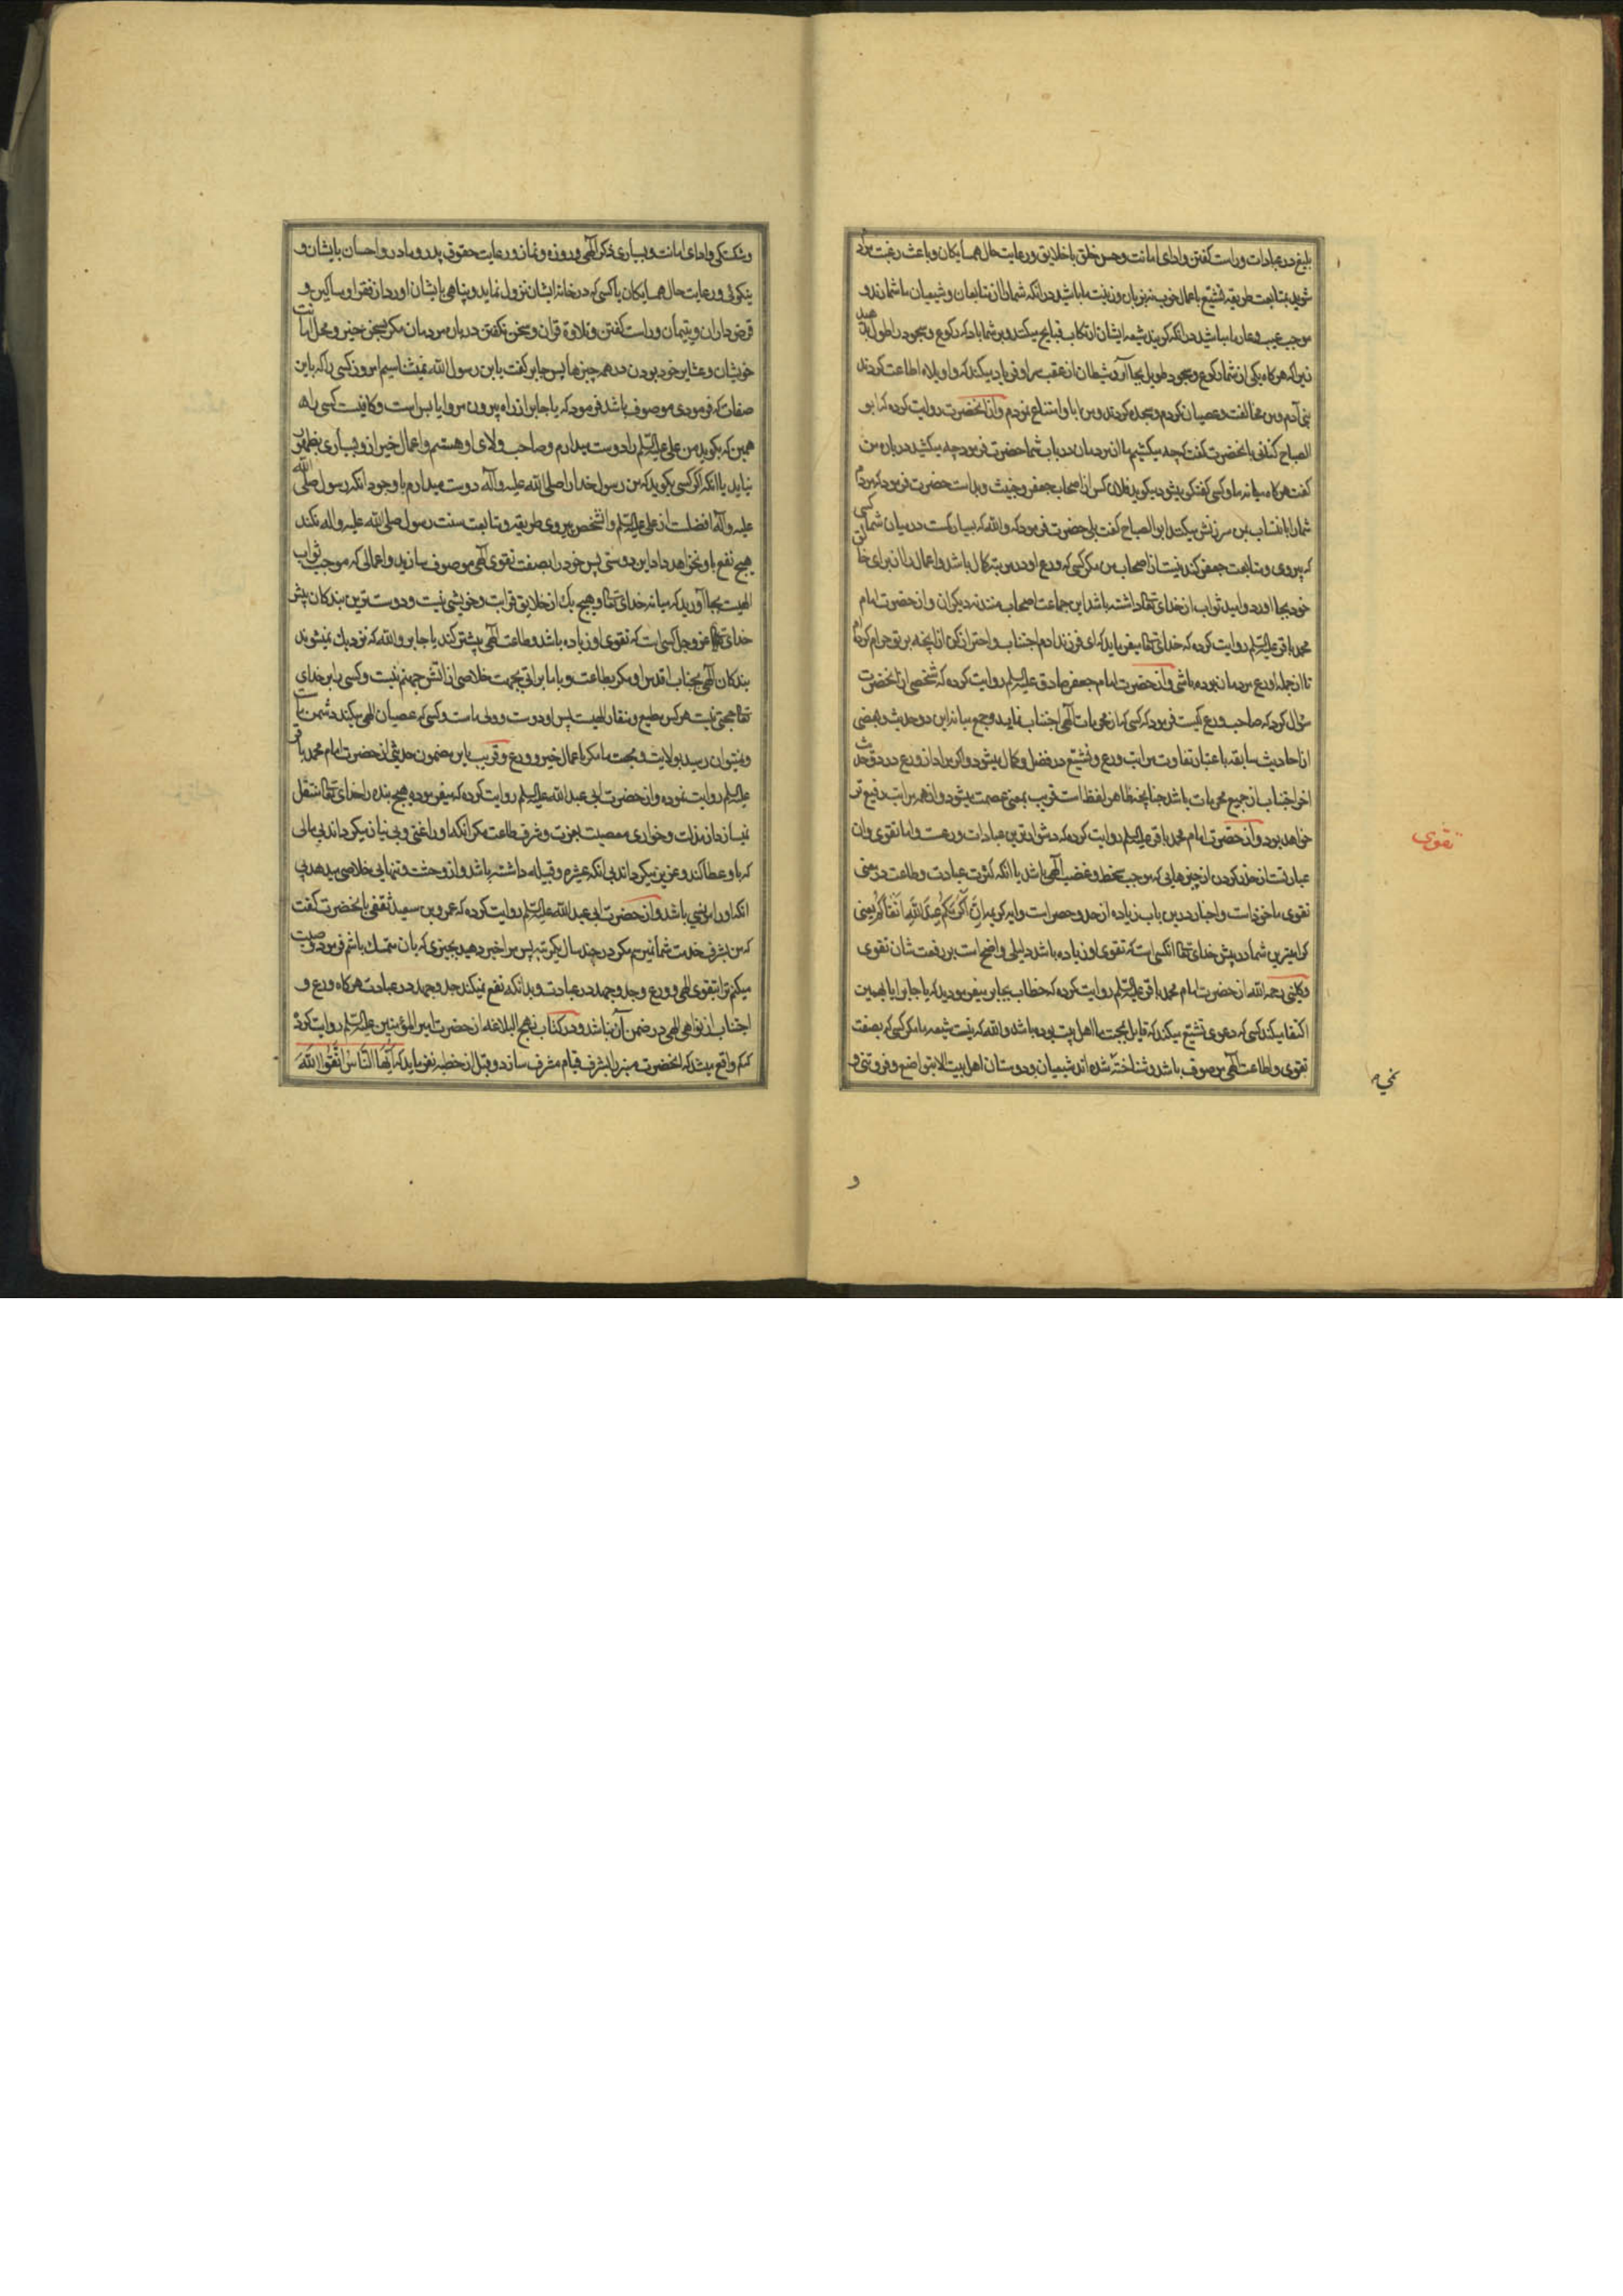 بلیغ در عبادات و راست کفتن و ادای امانت و حسن خلق با خلایق و رعایت حال همسایکان و باعث رغبت مردم
شوید بمتابعت طریقه تشیع باعمال خوب نه بزبان و زینت ما باشید در آنکه شما را از تابعان و شیعیان ما شمارند و
موجب عیب و عار ما مباشید در آنکه کویند شیعه ایشان ارتکاب قبایح میکنند و بر شما باد که رکوع و سجود را طول بدهید
زیرا که هر کاه یکی از شما رکوع و سجود طویل بجا آرد شیطان از عقب سر او فریاد میکند که واویلاه اطاعت کردند
بنی آدم و من مخالفت و عصیان کردم و سجده کردند و من ابا و امتناع نمودم و از آنحضرت روایت کرده که ابو
الصباح کنانی بآنحضرت کفت که چه میکشیم ما از مردمان در باب شما حضرت فرمود چه میکشید در باره من
کفت هر کاه میانه ما و کسی کفتکو میشود میکوید فلان کس از اصحاب جعفر و خبیث و بد است حضرت فرمود که مردم
شما را بانتساب بمن سرزنش میکنند ابو الصباح کفت بلی حضرت فرمود که والله که بسیار کمست در میان شما کسی
که پیروی و متابعت جعفر کند نیست از اصحاب من مکر کسی که ورع او در مرتبه کمال باشد و اعمال را از برای خالق
خود بجا اورد و امید ثواب از خدای تعالی داشته باشد این جماعت اصحاب منند نه دیکران و از حضرت امام
محمد باقر علیه السلام روایت کرده که خدای تعالی میفرماید که ای فرزند ادم اجتناب و احتراز کن از انچه بر تو حرام کرده‌ام
تا از جمله اورع مردمان بوده باشی و از حضرت امام جعفر صادق علیه السلام روایت کرده که شخصی از آنحضرت
سؤال کرد که صاحب ورع کیست فرمود که کسی که از محرمات الهی اجتناب نماید و جمع میانه این دو حدیث و بعضی
از احادیث سابقه باعتبار تفاوت مراتب ورع و تشیع در فضل و کمال میشود و اکر مراد از ورع در دو حدیث
اخر اجتناب از جمیع محرمات باشد چنانچه ظاهر لفظ است قریب بمعنی عصمت میشود و از همه مراتب رفیع تر
خواهد بود و از حضرت امام محمد باقر علیه السلام روایت کرده که دشوارترین عبادات ورعست و اما تقوی و ان
عبارتست از حذر کردن از چیزهایی که موجب سخط و غضب الهی باشد با انکه کثرت عبادت و طاعت در معنی
تقوی ماخوذ است و اخبار درین باب زیاده از حد و حصر است و آیه کریمه اِنَّ اَکْرَمَکُمْ عِنْدَ اللّٰهِ اَتْقٰاکُمْ یعنی
کرامی‌ترین شما در پیش خدای تعالی انکسی است که تقوی او زیاده باشد دلیلی واضح است بر رفعت شان تقوی
و کلینی رحمه الله از حضرت امام محمد باقر علیه السلام روایت کرده که خطاب بجابر میفرمودند که یا جابر ایا بهمین
اکتفا میکند کسی که دعوی تشیع میکند که قایل بمحبت ما اهل بیت بوده باشد والله که نیست شیعه ما مکر کسی که بصفت
تقوی و اطاعت الهی موصوف باشد و شناخته نشده‌اند شیعیان و دوستان اهل بیت الا بتواضع و فروتنی و
تقوی
و
و شکستکی و ادای امانت و بسیاری ذکر الهی و روزه و نماز و رعایت حقوق پدر و مادر و احسان بایشان و
نیکوئی و رعایت حال همسایکان یا کسی که در خانه ایشان نزول نماید و پناهی بایشان اورد از فقرا و مساکین و
قرض داران و یتیمان و راست کفتن و تلاوة قران و سخن نکفتن در باره مردمان مکر بسخن خیر و محل امانت
خویشان و عشایر خود بودن در همه چیزها پس جابر کفت یا بن رسول الله نمیشناسیم امروز کسی را که باین
صفات که فرمودی موصوف باشد فرمود که یا جابر از راه بیرون مرو ایا بس است و کافیست کسی را که
همین که بکوید من علی علیه السلام را دوست میدارم و صاحب ولای او هستم و اعمال خیر ازو بسیاری بظهور
نیاید با انکه اکر کسی بکوید که من رسول خدا را صلی الله علیه و آله دوست میدارم با وجود انکه رسول صلی الله
علیه و آله افضلست از علی علیه السلام و انشخص پیروی طریقه و متابعت سنت رسول صلی الله علیه و اله نکند
هیچ نفع باو نخواهد داد این دوستی پس خود را بصفت تقوی الهی موصوف سازید و اعمالی که موجب ثواب
الهیست بجا آورید که میانه خدای تعالی و هیچ یک از خلایق قرابت و خویشی نیست و دوست‌ترین بندکان پیش
خدای تعالی عز و جل کسی است که تقوی او زیاده باشد و طاعت الهی بیشتر کند یا جابر والله که نزدیک نمیشوند
بندکان الهی بجناب اقدس او مکر بطاعت و با ما براتی بجهت خلاصی از آتش جهنم نیست و کسی را بر خدای
تعالی حجتی نیست هر کس مطیع و منقاد الهیست پس او دوست و ولی ماست و کسی که عصیان الهی میکند دشمن ماست
و نمیتوان رسید بولایت و محبت ما مکر باعمال خیر و ورع و قریب باین مضمون حدیثی از حضرت امام محمد باقر
علیه السلام روایت نموده و از حضرت ابی عبد الله علیه السلام روایت کرده که میفرموده هیچ بنده را خدای تعالی منتقل
نمیسازد از مذلت و خواری معصیت بعزت و شرف طاعت مکر انکه او را غنی و بی نیاز میکرداند بی مالی
که باو عطا کند و عزیز میکرداند بی انکه عشیره و قبیله داشته باشد و از وحشت و تنهایی خلاصی میدهد بی
انکه او را مونسی باشد و از حضرت ابی عبد الله علیه السلام روایت کرده که عمرو بن سعید ثقفی بآنحضرت کفت
که من بشرف خدمت شما نمیرسم مکر در چند سال یکمرتبه پس مرا خبر دهید بچیزی که بان متمسک باشم فرمود وصیت
میکنم ترا بتقوی الهی و ورع و جد و جهد در عبادت و بدانکه نفع نمیکند جد و جهد در عبادت هر کاه ورع و
اجتناب از نواهی الهی در ضمن آن نباشد و در کتاب نهج البلاغه از حضرت امیر المؤمنین علیه السلام روایت کرده
که کم واقع میشد که انحضرت منبر را بشرف قیام مشرف سازد و قبل از خطبه نفرماید که اَیُّهَا النّٰاسُ اتَّقُوا اللّٰهَ